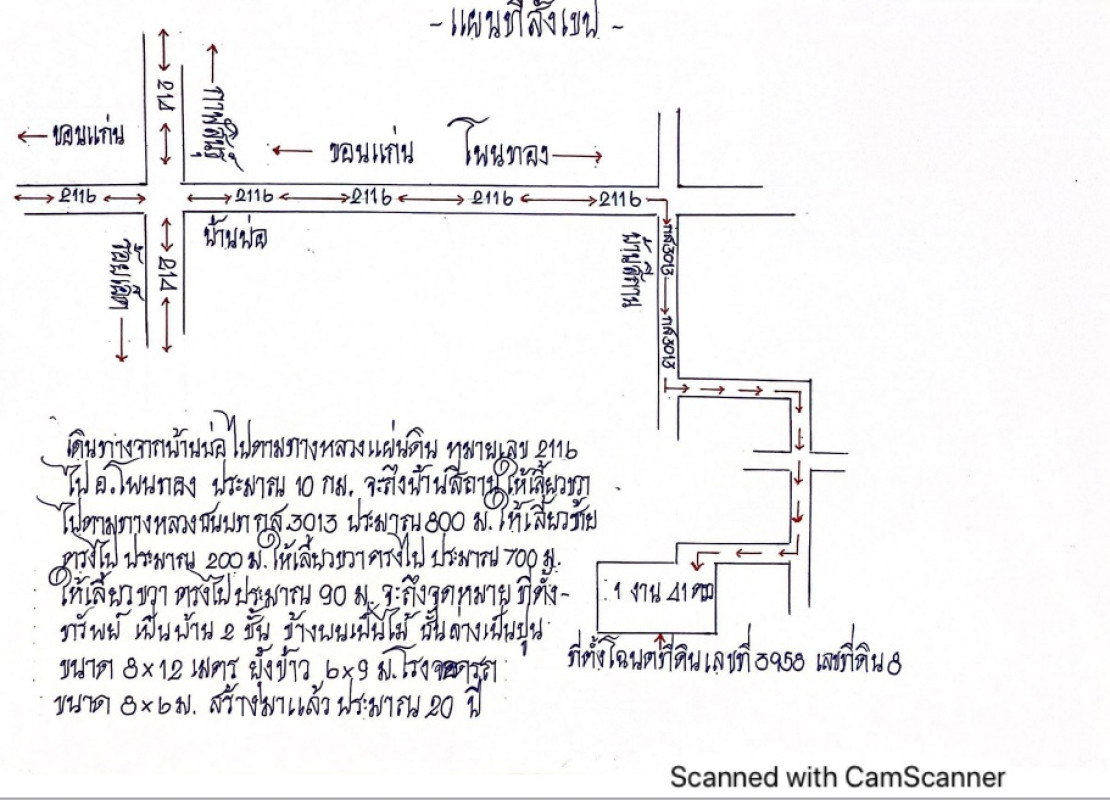 - แผนที่สังเขป -
214
กาฬสินธุ์
← ขอนแก่น
← ขอนแก่น โพนทอง →
2116 2116 2116 2116 2116
บ้านบ่อ
ร้อยเอ็ด
214
บ้านสีถาน
กส3013
กส3013
เดินทางจากบ้านบ่อไปตามทางหลวงแผ่นดิน หมายเลข 2116
ไป อ.โพนทอง ประมาณ 10 กม. จะถึงบ้านสีถาน ให้เลี้ยวขวา
ไปตามทางหลวงชนบท กส.3013 ประมาณ 800 ม. ให้เลี้ยวซ้าย
ตรงไป ประมาณ 200 ม. ให้เลี้ยวขวา ตรงไป ประมาณ 700 ม.
ให้เลี้ยวขวา ตรงไปประมาณ 90 ม. จะถึงจุดหมาย ที่ตั้ง-
ทรัพย์ เป็นบ้าน 2 ชั้น ข้างบนเป็นไม้ ชั้นล่างเป็นปูน
ขนาด 8×12 เมตร ยุ้งข้าว 6×9 ม. โรงจอดรถ
ขนาด 8×6 ม. สร้างมาแล้ว ประมาณ 20 ปี
1 งาน 41 ตว
ที่ตั้งโฉนดที่ดิน เลขที่ 3958 เลขที่ดิน 8
Scanned with CamScanner